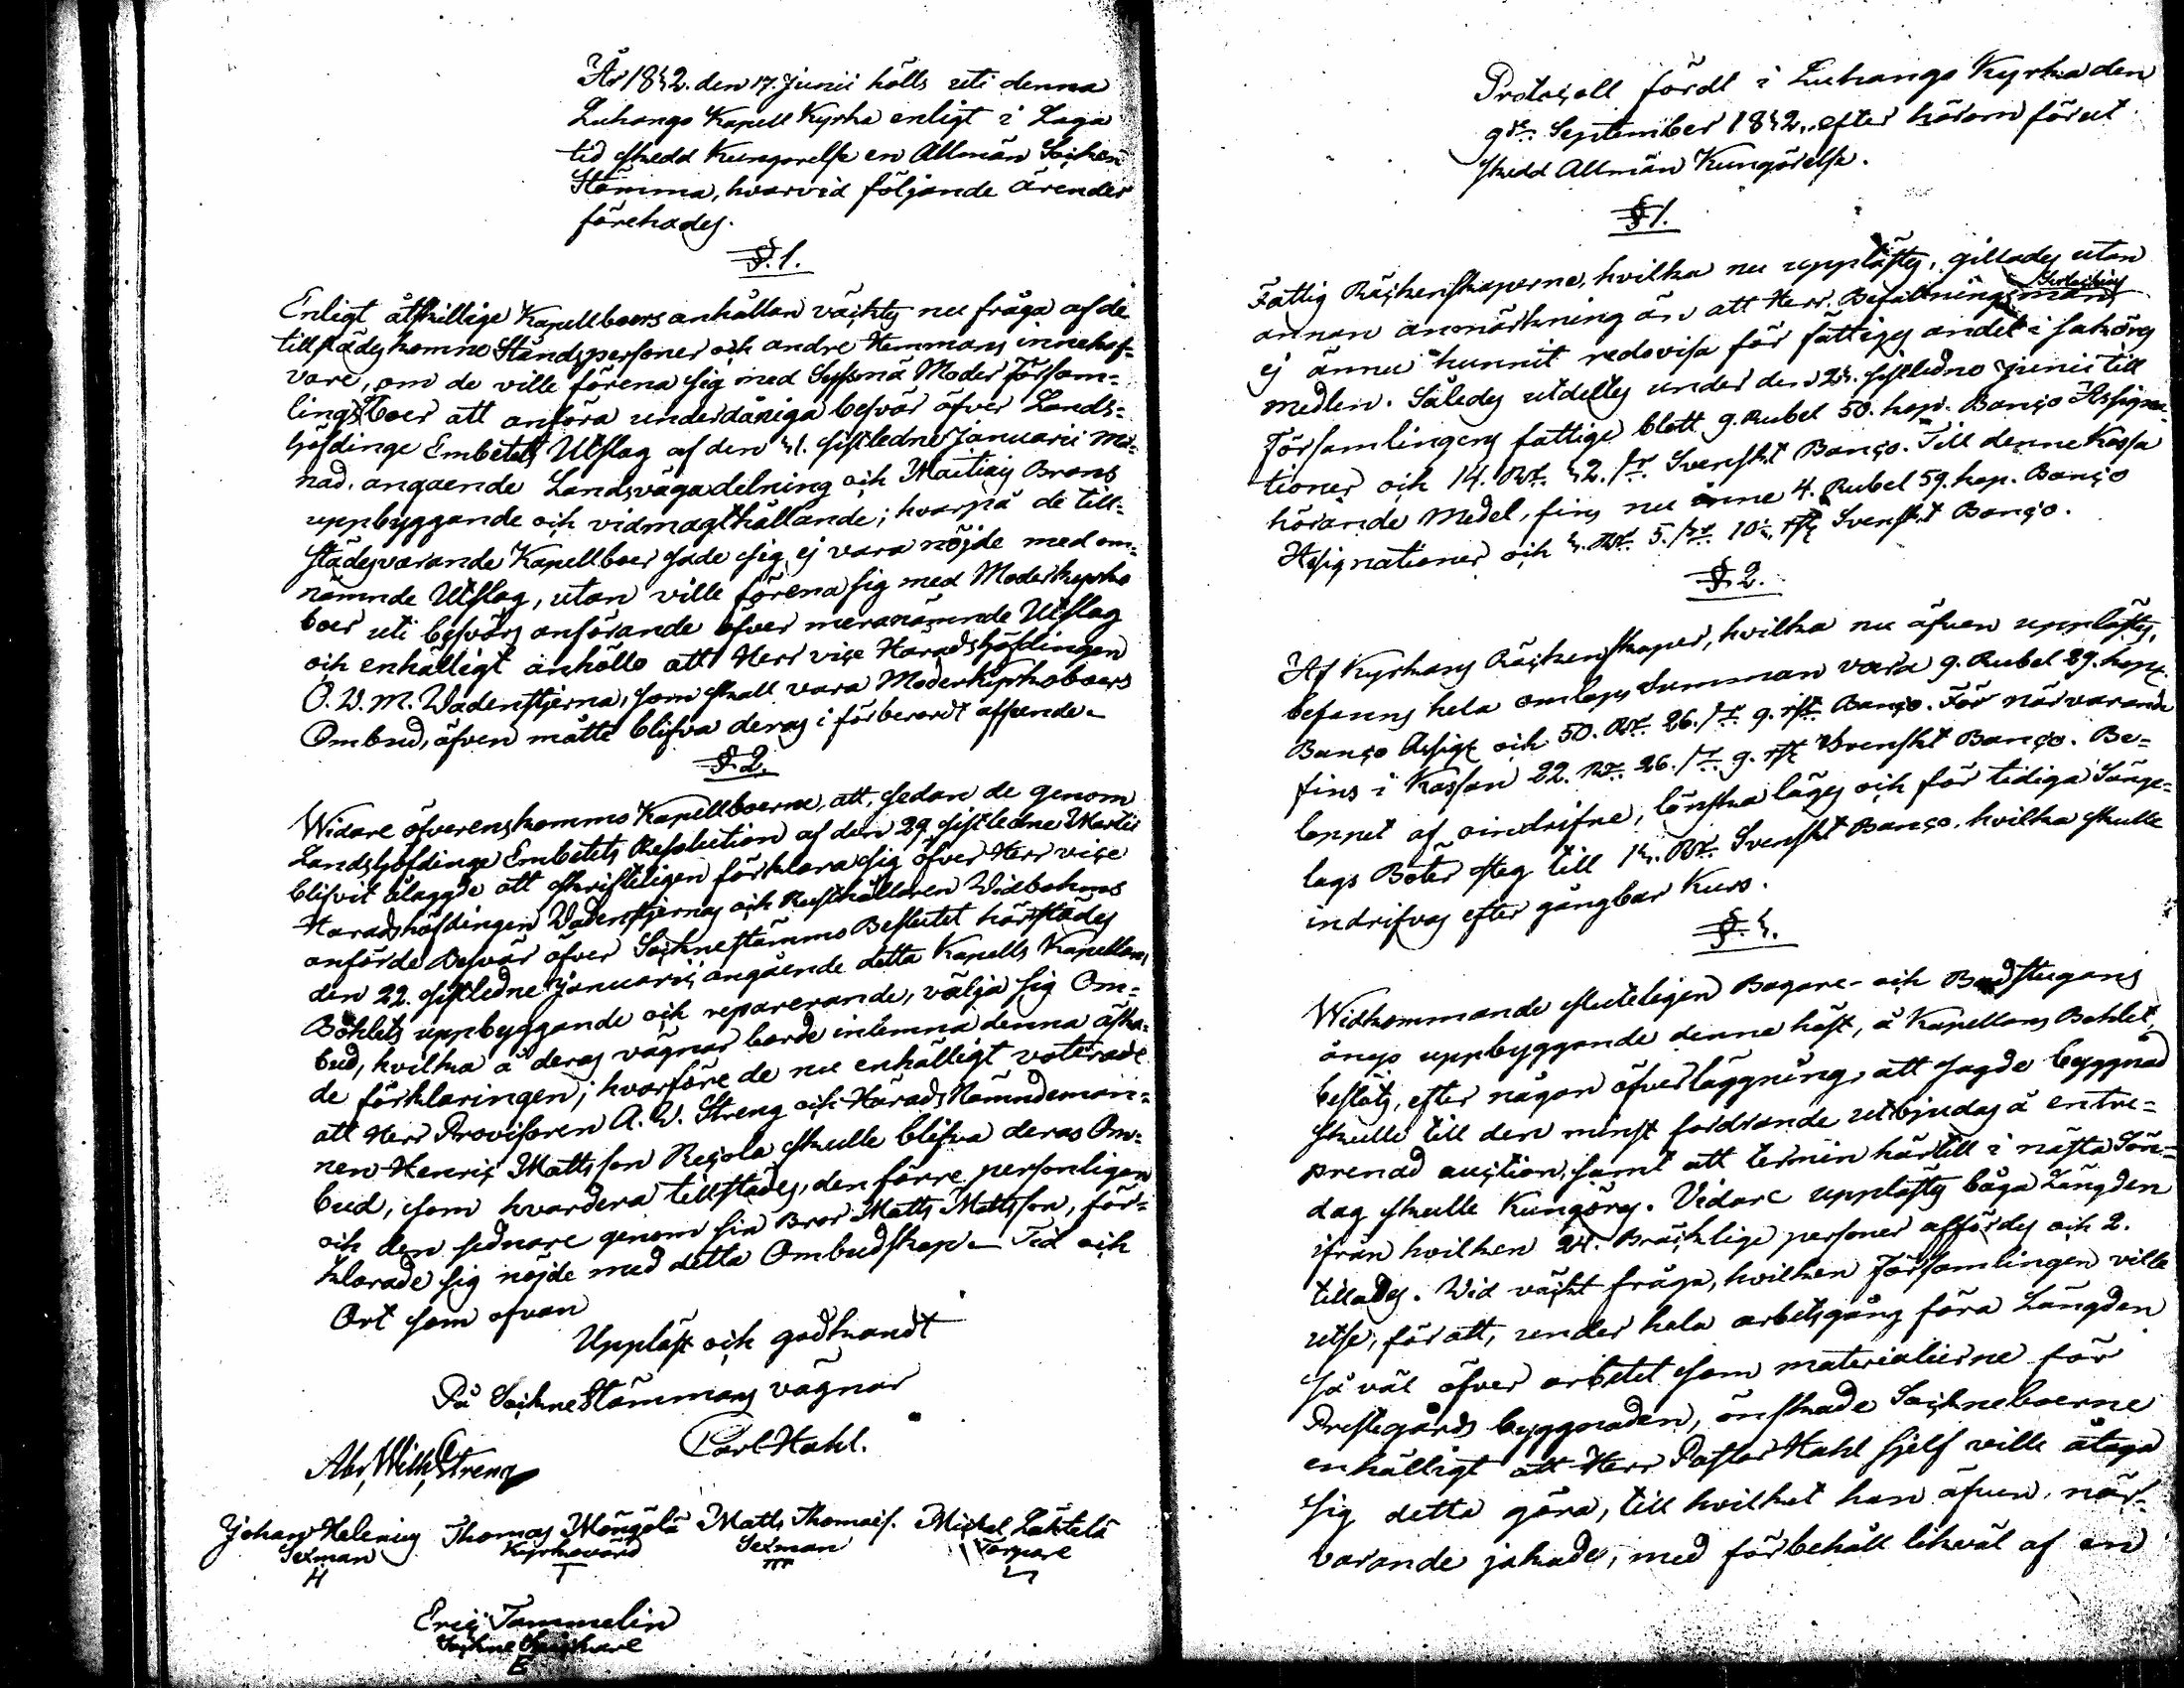 År 1832. den 17. Junii hölls uti denna
Luhango Kapell Kyrka enligt i Laga
tid skedd Kungörelse en Allmän Sochen
Stämma, hvarvid följande ärender
förehades.
§. 1.
Enligt åtskillige Kapellboers anhållan väcktes nu fråga af de
tillstädeskomne Ståndspersoner och andre Hemmans innehaf=
vare, om de ville förena sig med Sysmä Moder Försam=
lings boer att anföra underdåniga besvär öfver Lands=
höfdinge Embetets Utslag af den 31. sistledne Januarii Må=
nad, angaende Landsvägadelning och Maitiais Brons
uppbyggande och vidmagthållande; hvarpå de till=
städesvarande Kapellboer sade sig ej vara nöjde med om=
nämnde Utslag, utan ville förena sig med Moderkyrko
boer uti besvärs anförande öfver meranämnde Utslag
och enhälligt anhöllo att Herr vice Häradshöfdingen
O. W. M. Wadenstjerna, som skall vara Moderkyrkoboers
Ombud, äfven måtte blifva deras i förberördt afseende.
§. 2.
Widare öfverenskommo Kapellboerne, att, sedan de genom
Landshöfdinge Embetets Resolution af den 29 sistledne Martii
blifvit ålaggde att skrifteligen förklara sig öfver Herr vice
Häradshöfdingen Wadenstjernas och Rusthållaren Widbohms
anförde Besvär öfver Sockne stämmo Beslutet härstädes
den 22. sistledne Januarii, angående detta Kapells Kapellans
Bohlets uppbyggande och reparerande, välja sig Om=
bud, hvilka å deras vägnar borde inlemna denna äska=
de förklaringen; hvarföre de nu enhälligt voterade
att Herr Provisoren A. W. Streng och Härads Nämndeman=
nen Henric Mattsson Recola skulle blifva deras Om=
bud, som hvardera tillstädes, den förre personligen
och den sednare genom sin Bror Matts Mattsson, för=
klarade sig nöjde med detta Ombudskap. Tid och
Ort som ofvan
Uppläst och godkandt
På SockneStämmans vägnar
Carl Hahl.
Abr, Wilh, Streng
Johan Helenius Thomas Mängälä Matts Thomass. Michel Lahtelä
Sexman Kyrkovärd Sexman Torpare
H T m
Eric Tammelin
Sockne
E
Protocoll fördt i Luhango Kyrka den
9de September 1832, efter härom förut
skedd Allmän Kungörelse.
§ 1.
Fattig Räckenskaperne, hvilka nu upplästes, gillades utan
annan anmärkning än att Herr. Befallningsman
ej ännu hunnit redovisa för fattiges andel i saköres
medlen. Således utdeltes under den 24. sistledne Junii till
Församlingens fattige blott 9. Rubel 50. kop. Banco Assigna=
tioner och 14. Rd. 32. s. Svenskt Banco. Till denne Kassa
hörande Medel, fins nu änne 4. Rubel 59. kop. Banco
Assignationer och 3. Rd. 5. s. 10. rst Svenskt Banco.
§. 2.
Af Kyrkans Räckenskaper, hvilka nu äfven upplästes,
befanns hela omlops Summan vara 9. Rubel 29. kop.
Banco Assig och 50. Rd. 26. s. 9. rst Banco. För närvarande
fins i Kassan 22. Rd. 26. s. 9. rst Svenskt Banco. Be=
loppet af oindrifne, lönska läges och för tidiga Sänge=
lags Böter steg till 13. Rd. Svenskt Banco, hvilka skulle
indrifvas efter gångbar Kurs.
§. 3.
Widkommande sluteligen Bagare- och Badstugans
uppbyggande denne höst, å Kapellans Bohlet,
beslöts, efter någon öfverläggning, att sagde byggnad
skulle till den minst fordrande utbjudas å entre=
prenad auction, samt att termin härtill i nästa Sön=
dag skulle Kungöras. Vidare upplästes båga Längden
ifrån hvilken 24. Bräcklige personer affördes och 2.
tillades. Wid väckt fråga, hvilken Församlingen ville
utse, för att, under hela arbetsgång föra Längden
så väl öfver arbetet som materialierne för
Prestegårds byggnaden, önskade Sockneboerne
enhälligt att Herr Pastor Hahl sjelf ville åtaga
sig detta göra, till hvilket han äfven, när=
varande jakade, med förbehåll likväl af en